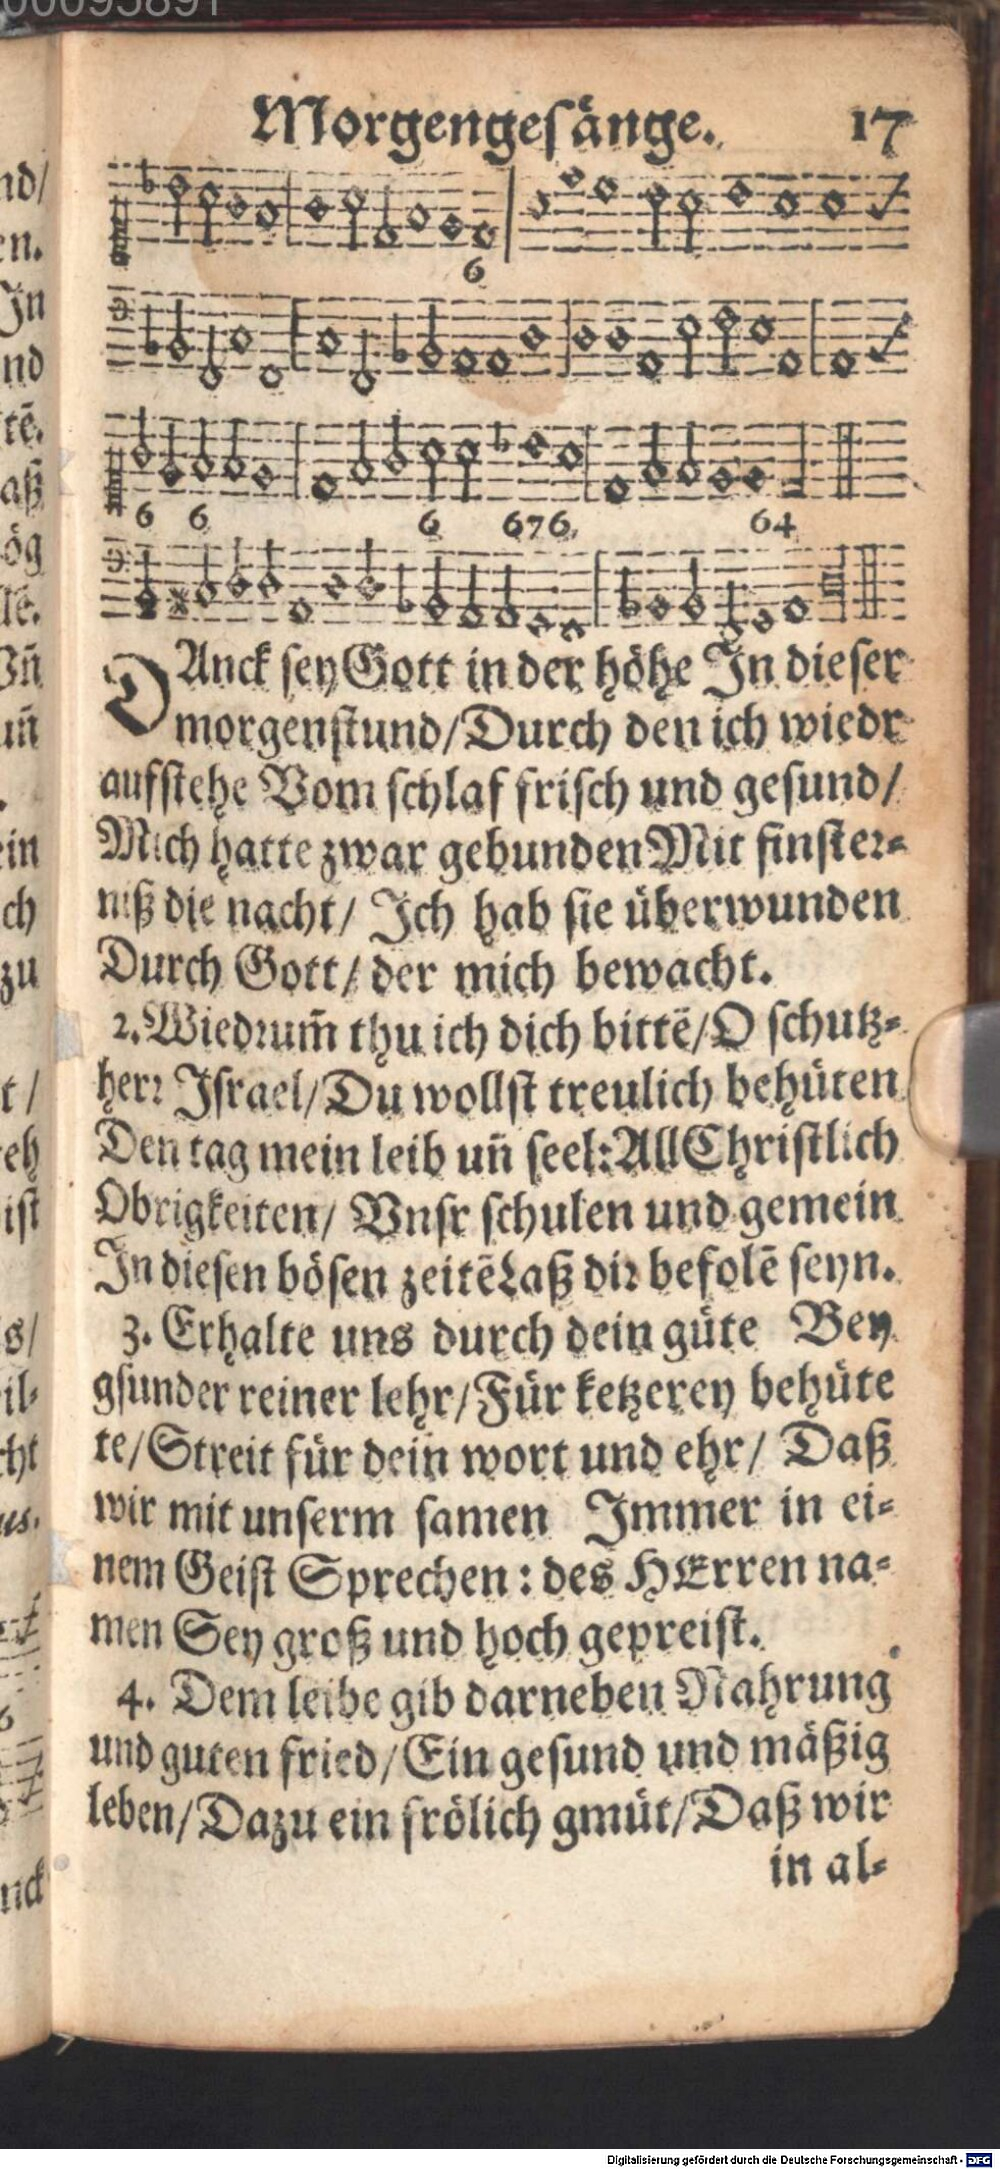 00095891
Morgengesånge. 17
6
6 6 6 676. 64
DAnck sey Gott in der höhe In dieser
morgenstund/Durch den ich wiedr
aufstehe Vom schlaf frisch und gesund/
Mich hatte zwar gebunden Mit finster-
niß die nacht/ Ich hab sie überwunden
Durch Gott/ der mich bewacht.
2. Wiedrum̃ thu ich dich bittẽ/O schutz-
herr Israel/Du wollst treulich behüten
Den tag mein leib uñ seel: All Christlich
Obrigkeiten/ Vnsr schulen und gemein
In diesen bösen zeitẽ Laß dir befolẽ seyn.
3. Erhalte uns durch dein güte Bey
gsunder reiner lehr/Für ketzerey behüte
te/Streit für dein wort und ehr/ Daß
wir mit unserm samen Immer in ei-
nem Geist Sprechen: des HErren na-
men Sey groß und hoch gepreist.
4. Dem leibe gib darneben Nahrung
und guten fried/Ein gesund und mäßig
leben/Dazu ein frölich gmüt/Daß wir
in al-
nd/
en.
In
nd
tẽ.
aß
ög
lẽ.
Vñ
uñ
ein
ch
zu
t/
eh
ist
s/
il-
cht
us.
6
nck
Digitalisierung gefördert durch die Deutsche Forschungsgemeinschaft - DFG